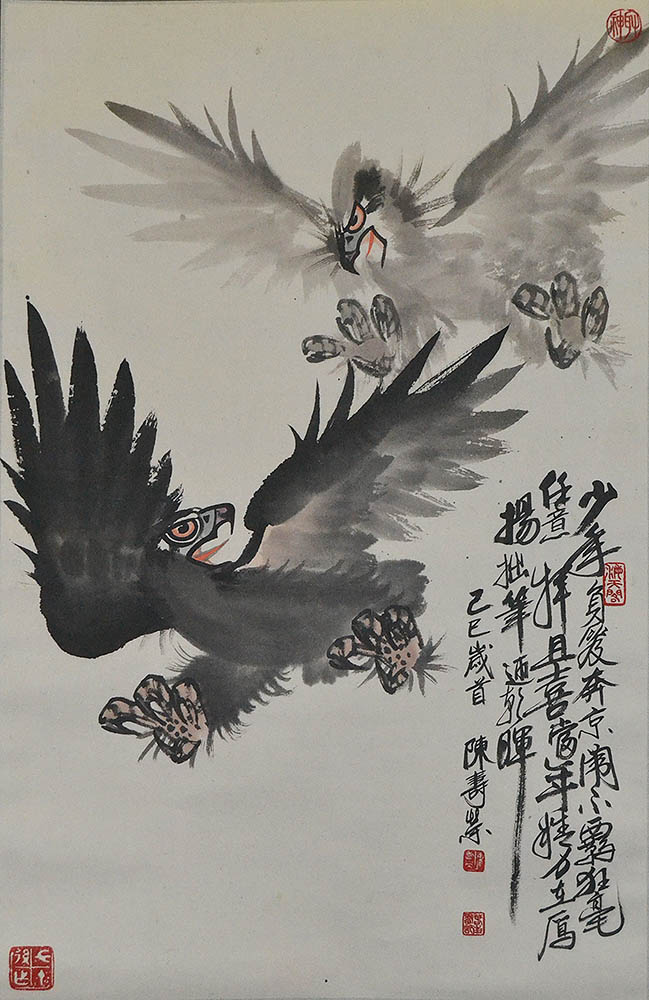 少年負笈奔京闈不羈狂毫
任意揮且喜當年精力在鷹
揚拙筆迎朝暉
己巳歲首 陳壽榮